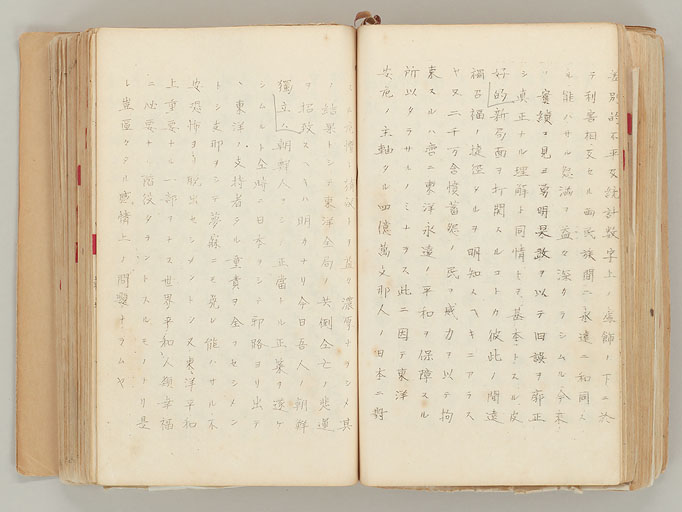 差別的不平及統計数字上ノ虚飾ノ下ニ於
テ利害相反セル両民族間ニ永遠ニ和同ス
ル能ハサル怨溝ヲ益々深カラシムル今来
ノ実績ヲ見ヨ勇明果敢ヲ以テ旧誤ヲ廓正
シ真正ナル理解ト同情トヲ基本トスル友
好的新局面ヲ打開スルコトカ彼此ノ間遠
禍召福ノ捷径タルヲ明知スヘキニアラス
ヤ又二千万含憤蓄怨ノ民ヲ威力ヲ以テ拘
束スルハ啻ニ東洋永遠ノ平和ヲ保障スル
所以タラサルノミナラス此ニ因テ東洋
安危ノ主軸タル四億万支那人ノ日本ニ対
益々濃厚ナラシメ其
ノ結果トシテ東洋全局ノ共倒全亡ノ悲運
ヲ招致スヘキハ明カナリ今日吾人ノ朝鮮
独立ハ朝鮮人ヲシテ正当ナル生栄ヲ遂ケ
シムルト全時ニ日本ヲシテ邪路ヨリ出テ
東洋ノ支持者タル重責ヲ全フセシメン
トシ支那ヲシテ夢寐ニモ免レ能ハサル不
安恐怖ヨリ脱出セシメントシ又東洋平和
上重要ナル一部ヲナス世界平和人類幸福
ニ必要ナル階段タラントスルモノナリ是
レ豈区々タル感情上ノ問題ナラムヤ